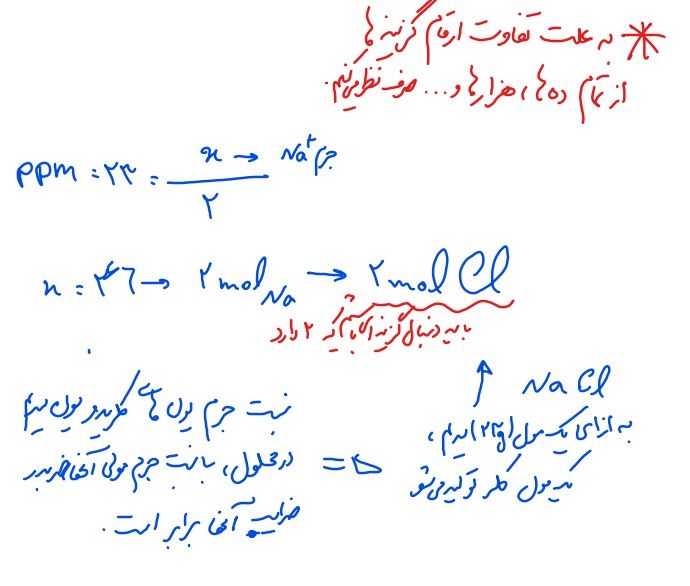 * به علت تفاوت ارقام گزینه ها
از تمام ده‌ها، هزارها و... صرف نظر می‌کنیم.
ppm = ۲۳ = x → جرم Na⁺
۲
x = ۴۶ → ۲ mol Na → ۲ mol Cl
باید دنبال گزینه ای باشیم که ۲ دارد
Na Cl
به ازای یک مول (۲۳g) سدیم،
یک مول کلر تولید می‌شود
نسبت جرم یون های کلرید و یون سدیم
در محلول، با نسبت جرم مولی آنها ضربدر
ضرایب آنها برابر است.